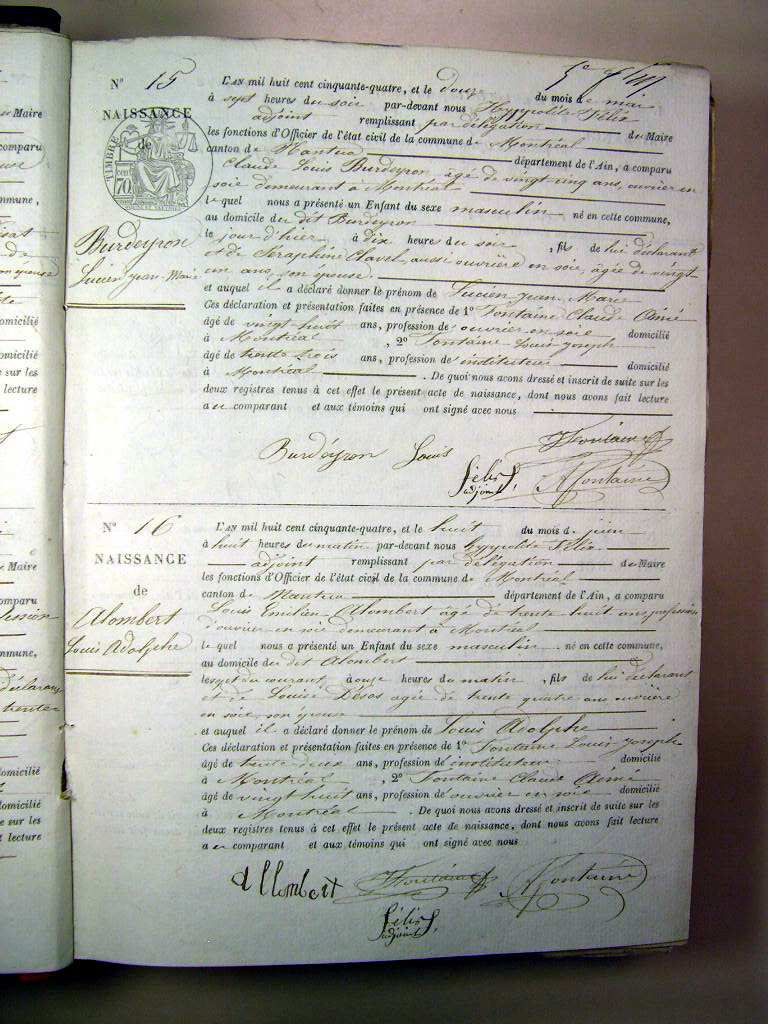 N° 15
NAISSANCE
de
TIMBRE
70
Burdeyron
Lucien Jean Marie
L'AN mil huit cent cinquante-quatre, et le douze du mois de mai
à sept heures du soir par-devant nous Hyppolite Félix
adjoint remplissant par délégation du Maire
les fonctions d'Officier de l'état civil de la commune de Montréal
canton de Nantua département de l'Ain, a comparu
Claude Louis Burdeyron, âgé de vingt cinq ans, ouvrier en
soie demeurant à Montréal
le quel nous a présenté un Enfant du sexe masculin né en cette commune,
au domicile du dit Burdeyron
le jour d'hier à dix heures du soir, fils de lui déclarant
et de Séraphine Clavel, aussi ouvrière en soie, âgée de vingt
un ans, son épouse.
et auquel il a déclaré donner le prénom de Lucien Jean Marie
Ces déclaration et présentation faites en présence de 1° Fontaine Claude Aimé
âgé de vingt huit ans, profession de ouvrier en soie domicilié
à Montréal, 2° Fontaine Louis Joseph
âgé de trente trois ans, profession de instituteur domicilié
à Montréal. De quoi nous avons dressé et inscrit de suite sur les
deux registres tenus à cet effet le présent acte de naissance, dont nous avons fait lecture
au comparant et aux témoins qui ont signé avec nous
Burdéyron Louis
Fontaine
Félix
adjoint
Fontaine
N° 16
NAISSANCE
de
Alombert
Louis Adolphe
L'AN mil huit cent cinquante-quatre, et le huit du mois de juin
à huit heures du matin par-devant nous hyppolite Félix
adjoint remplissant par délégation du Maire
les fonctions d'Officier de l'état civil de la commune de Montréal
canton de Nantua département de l'Ain, a comparu
Louis Emilien Alombert âgé de trente huit ans profession
d'ouvrier en soie demeurant à Montréal
le quel nous a présenté un Enfant du sexe masculin né en cette commune,
au domicile du dit Alombert
le sept du courant à onze heures du matin, fils de lui déclarant
et de Louise Désos agée de trente quatre ans ouvrière
en soie, son épouse
et auquel il a déclaré donner le prénom de Louis Adolphe
Ces déclaration et présentation faites en présence de 1° Fontaine Louis Joseph
âgé de trente deux ans, profession de instituteur domicilié
à Montréal, 2° Fontaine Claude Aimé
âgé de vingt huit ans, profession de ouvrier en soie domicilié
à Montréal. De quoi nous avons dressé et inscrit de suite sur les
deux registres tenus à cet effet le présent acte de naissance, dont nous avons fait lecture
au comparant et aux témoins qui ont signé avec nous
allombert
Fontaine
Fontaine
Félix
adjoint